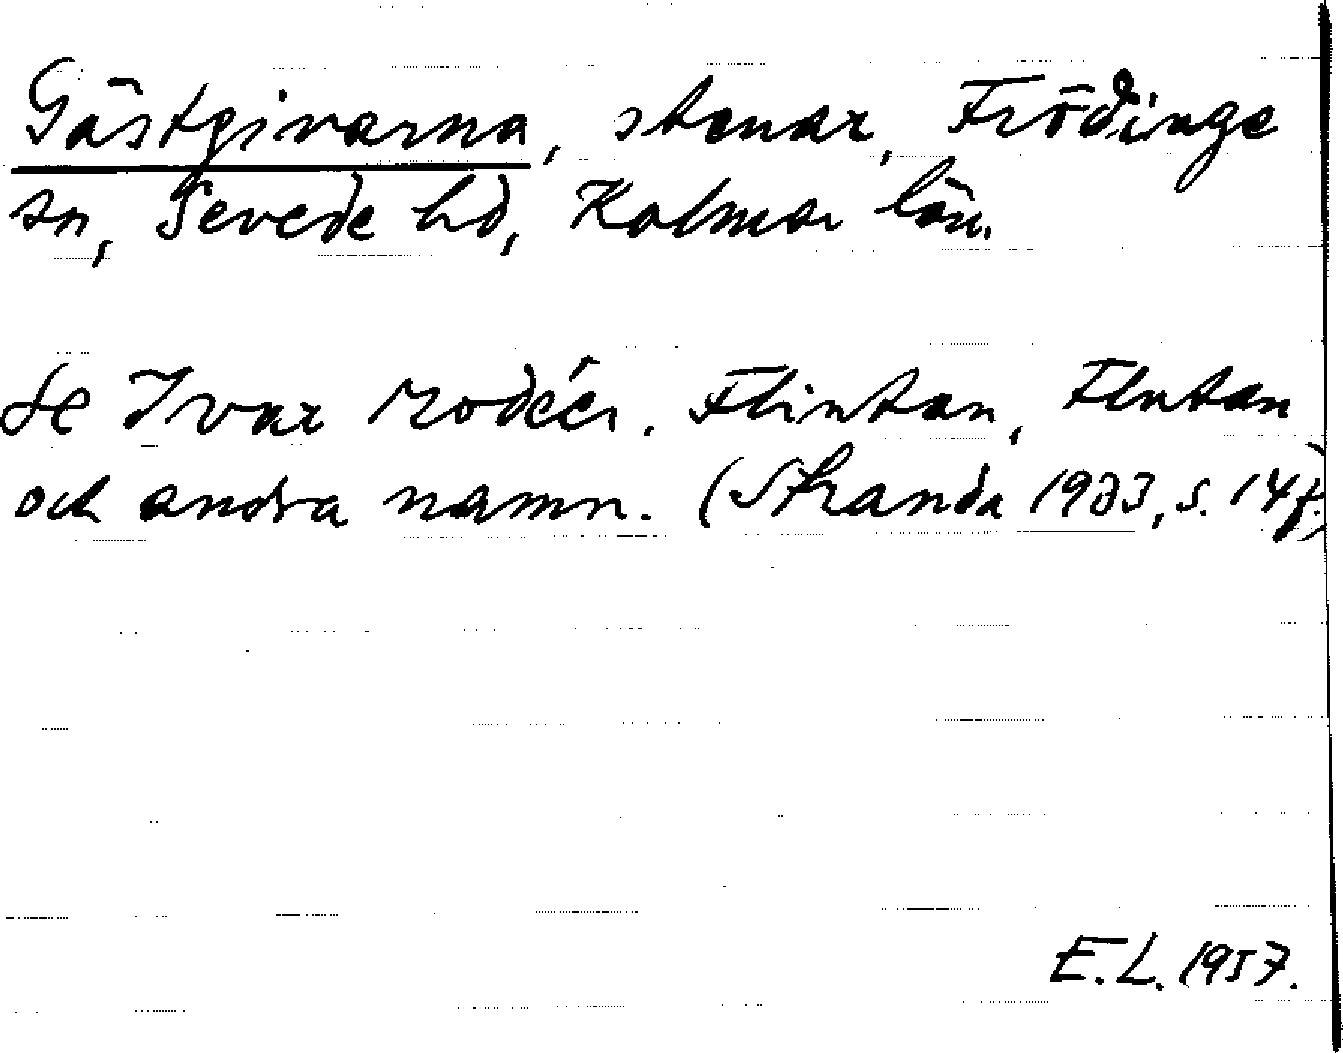 Gästgivarna, stenar, Frödinge
sn, Sevede hd, Kalmar län.
Se Ivar Modéer. Flintan, Flutan
och andra namn. (Stranda 1933, s. 14 f.)
E.L. 1957.